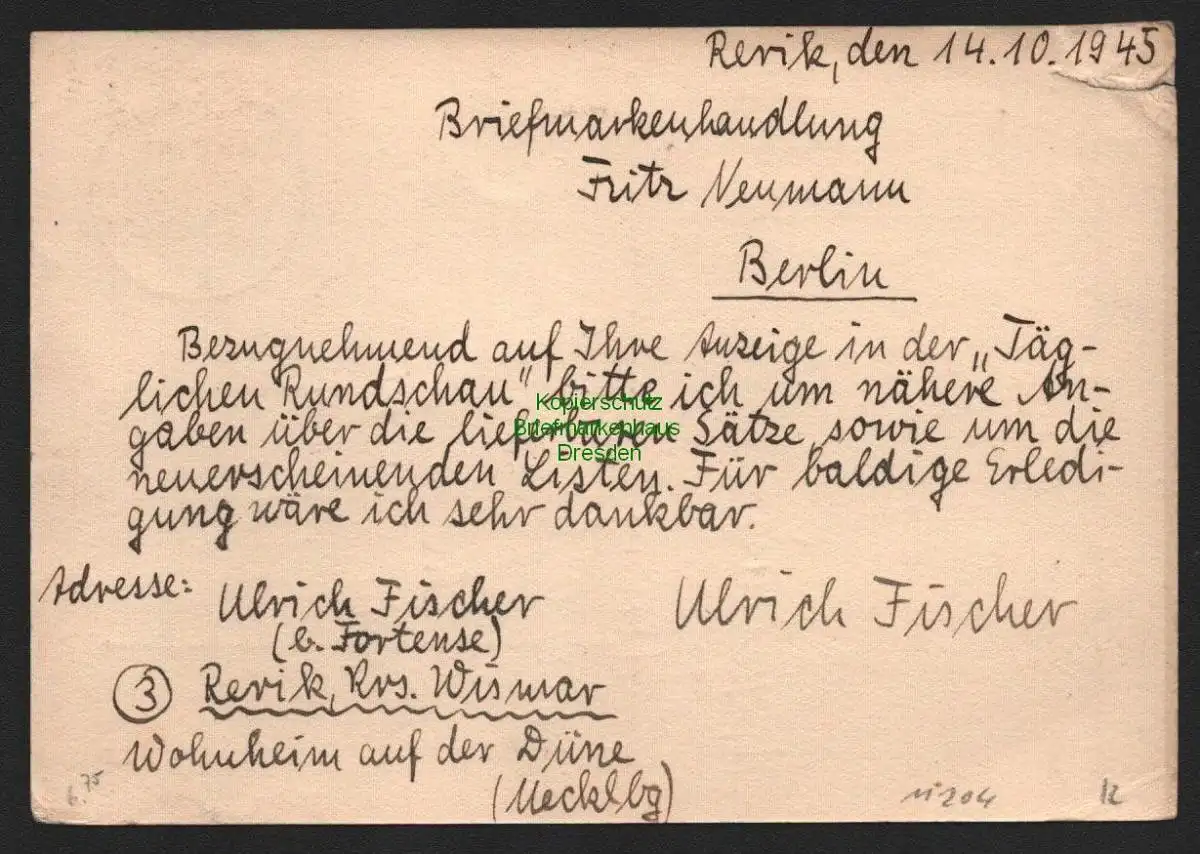 Rerik, den 14.10.1945
Briefmarkenhandlung
Fritz Neumann
Berlin
Bezugnehmend auf Ihre Anzeige in der „Täg-
lichen Rundschau" bitte ich um nähere An-
gaben über die lieferbaren Sätze, sowie um die
neuerscheinenden Listen. Für baldige Erledi-
gung wäre ich sehr dankbar.
Kopierschutz
Briefmarkenhaus
Dresden
Adresse: Ulrich Fischer
(b. Fortense)
Ulrich Fischer
③ Rerik, Krs. Wismar
Wohnheim auf der Düne
(Mecklbg)
6.75
12